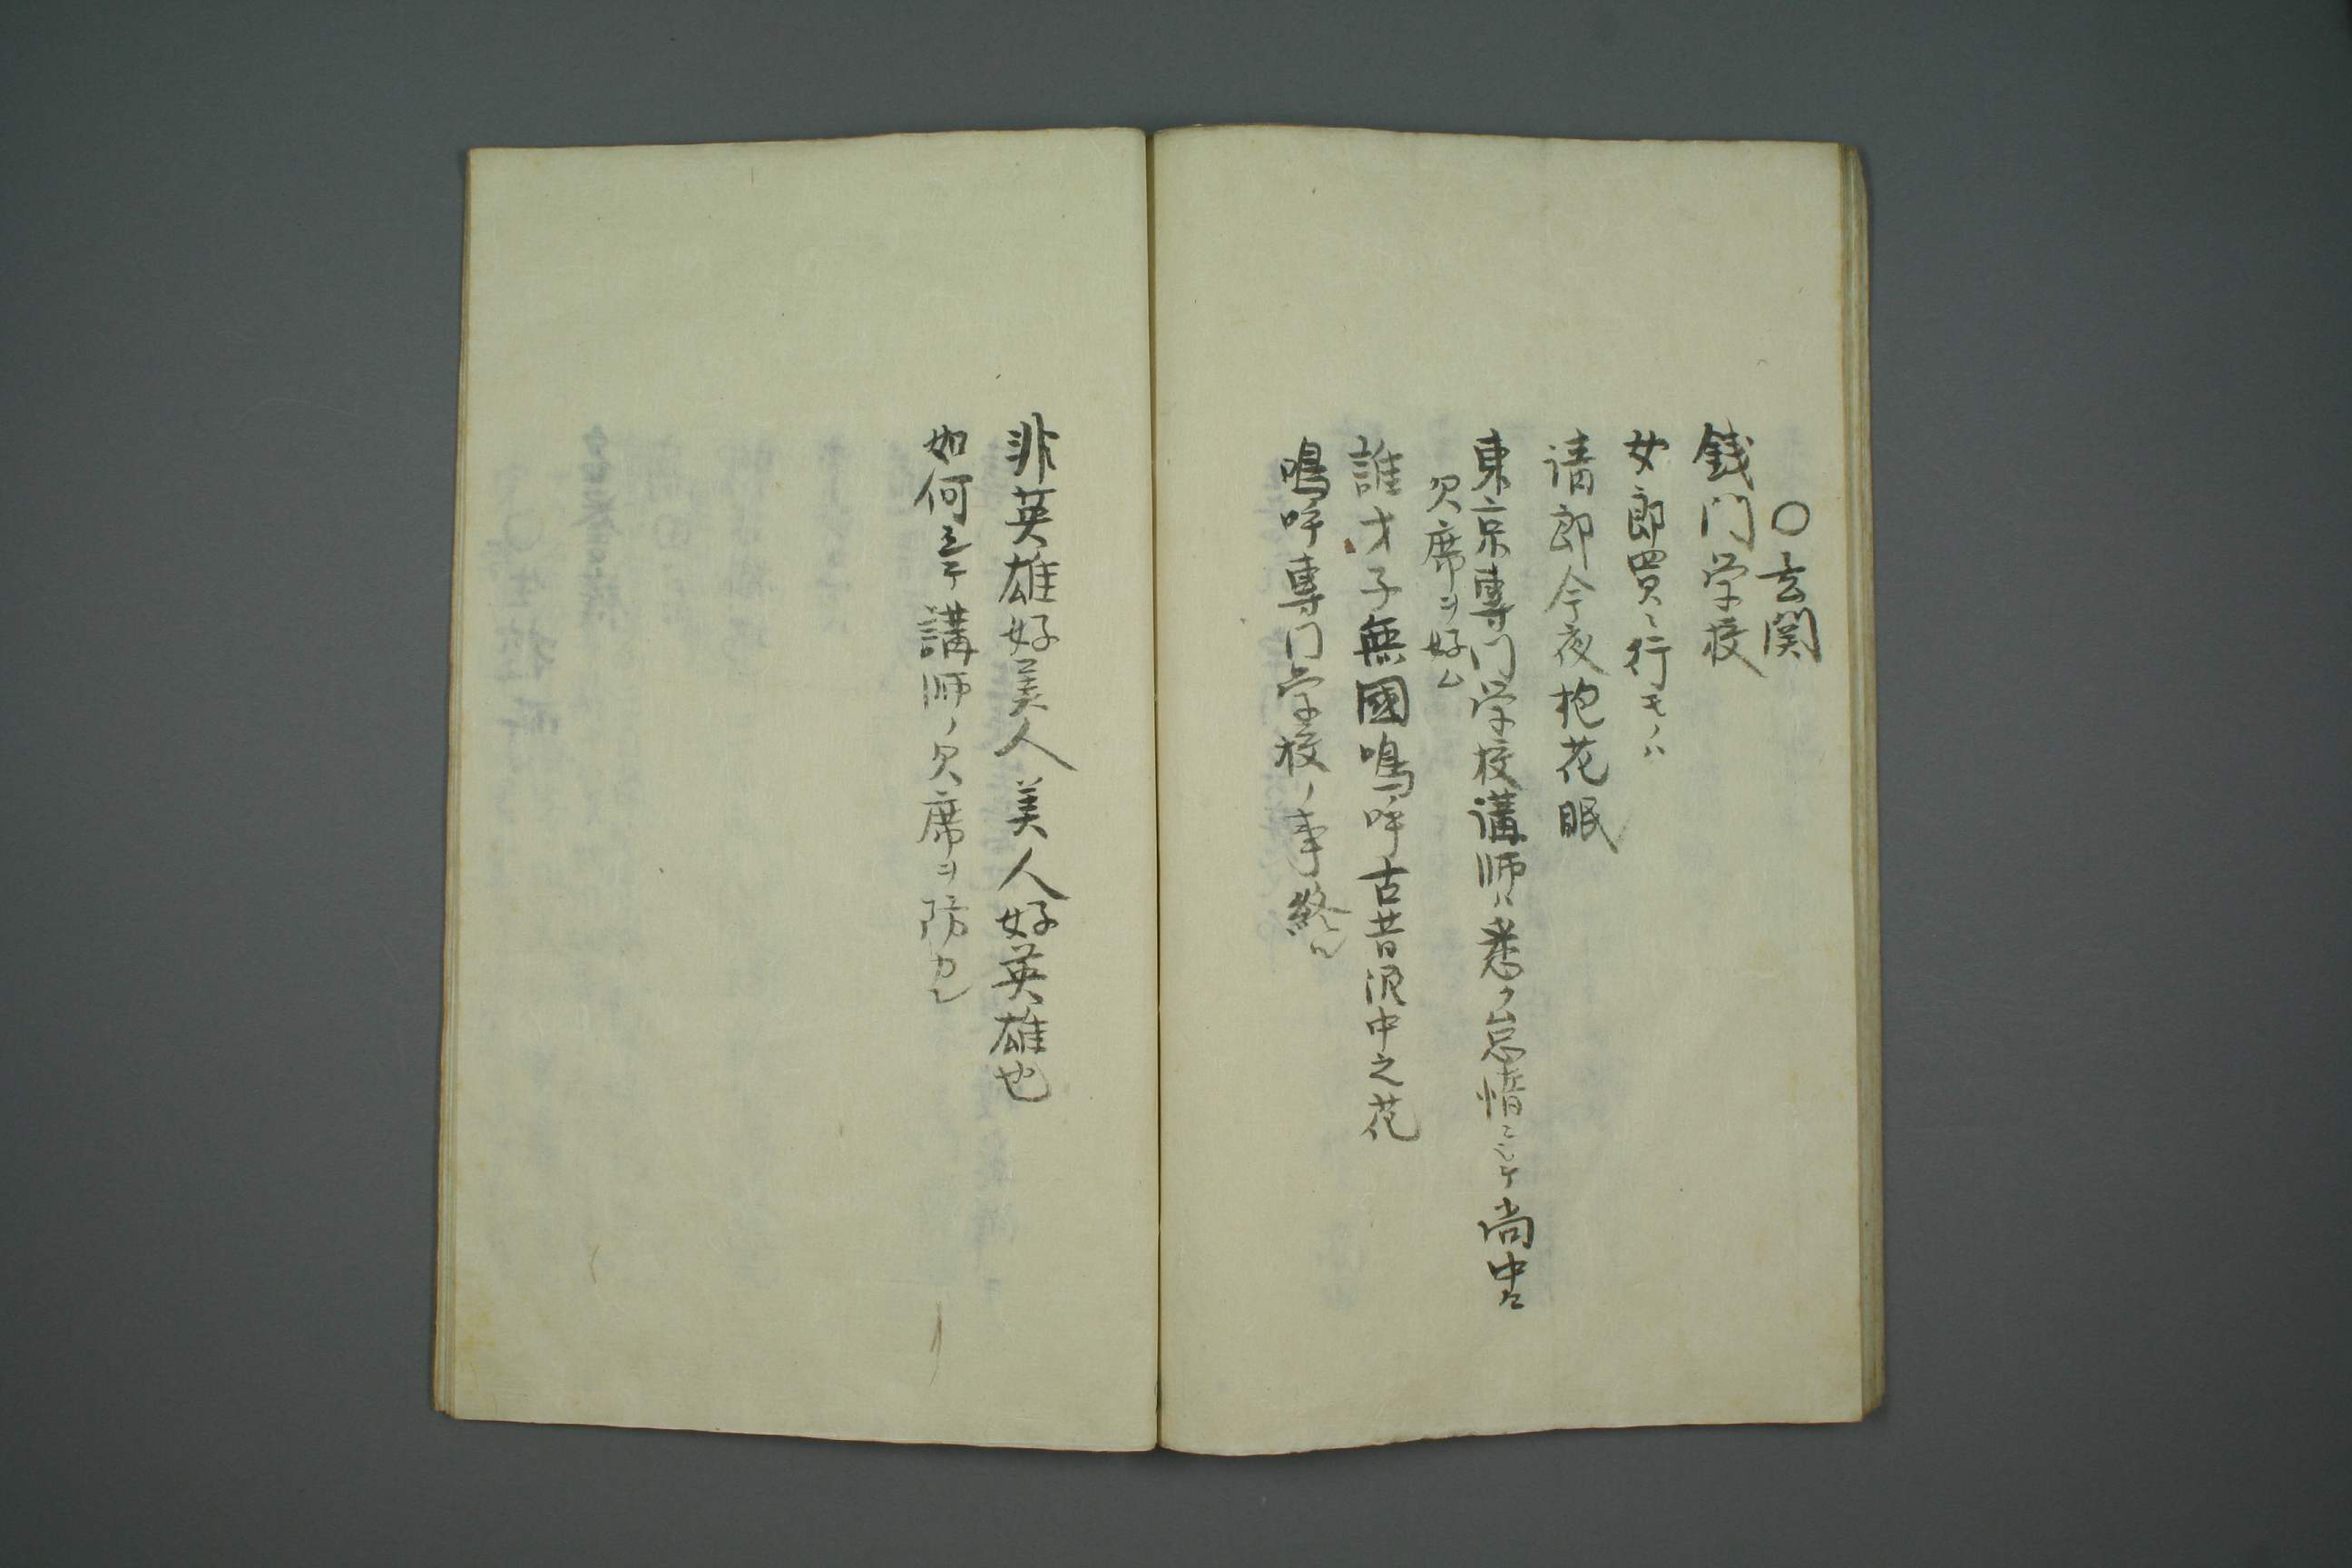 〇玄関
銭门学校
女郎買ニ行モノハ
请郎今夜枹花眠
東京専门学校講师ハ悉ク怠惰ニシテ尚中々
欠席ヲ好ム
誰才子無國鳴呼古昔泥中之花
鳴呼専门学校ノ事終ル
非英雄好美人美人好英雄也
如何ニシテ講师ノ欠席ヲ防カン